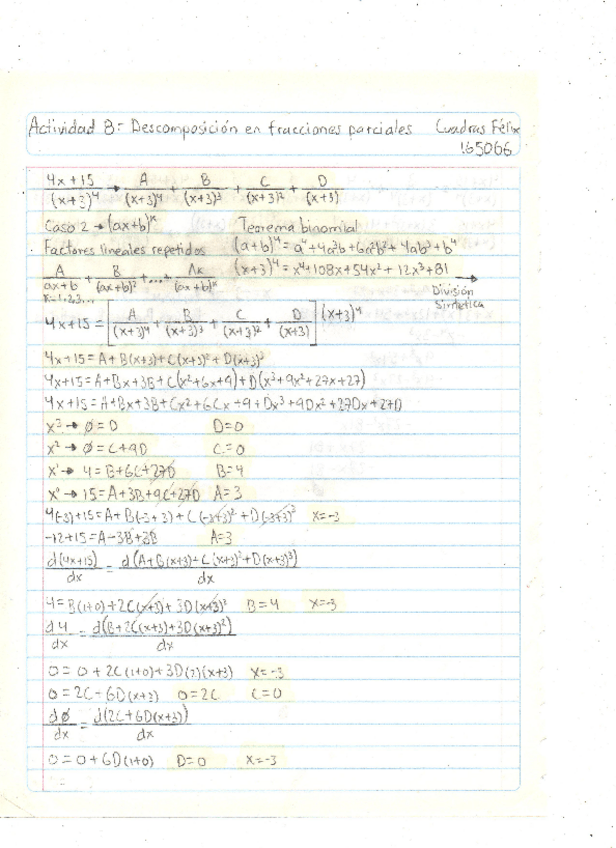 Actividad 8: Descomposición en fracciones parciales Cuadras Félix
165066
(4x+15)/(x+3)⁴ → A/(x+3)⁴ + B/(x+3)³ + C/(x+3)² + D/(x+3)
Caso 2 → (ax+b)ᵏ Teorema binomial
Factores lineales repetidos (a+b)⁴ = a⁴+4a³b+6a²b²+4ab³+b⁴
A/(ax+b) + B/(ax+b)² + ... + Aₖ/(ax+b)ᵏ (x+3)⁴ = x⁴+108x+54x²+12x³+81 →
k=1,2,3,... División
Sintética
4x+15 = [A/(x+3)⁴ + B/(x+3)³ + C/(x+3)² + D/(x+3)] (x+3)⁴
4x+15 = A+B(x+3)+C(x+3)²+D(x+3)³
4x+15 = A+Bx+3B+C(x²+6x+9)+D(x³+9x²+27x+27)
4x+15 = A+Bx+3B+Cx²+6Cx+9+Dx³+9Dx²+27Dx+27D
x³ → ø=D D=0
x² → ø=C+9D C=0
x' → 4=B+6C+27D B=4
x⁰ → 15=A+3B+9C+27D A=3
4(-3)+15=A+B(-3+3)+C(-3+3)²+D(-3+3)³ x=-3
-12+15=A-3B+3B A=3
d(4x+15)/dx = d(A+B(x+3)+C(x+3)²+D(x+3)³)/dx
4=B(1+0)+2C(x+3)+3D(x+3)² B=4 x=-3
d4/dx = d(B+2C(x+3)+3D(x+3)²)/dx
0=0+2C(1+0)+3D(2)(x+3) x=-3
0=2C+6D(x+3) 0=2C C=0
dø/dx = d(2C+6D(x+3))/dx
0=0+6D(1+0) D=0 x=-3